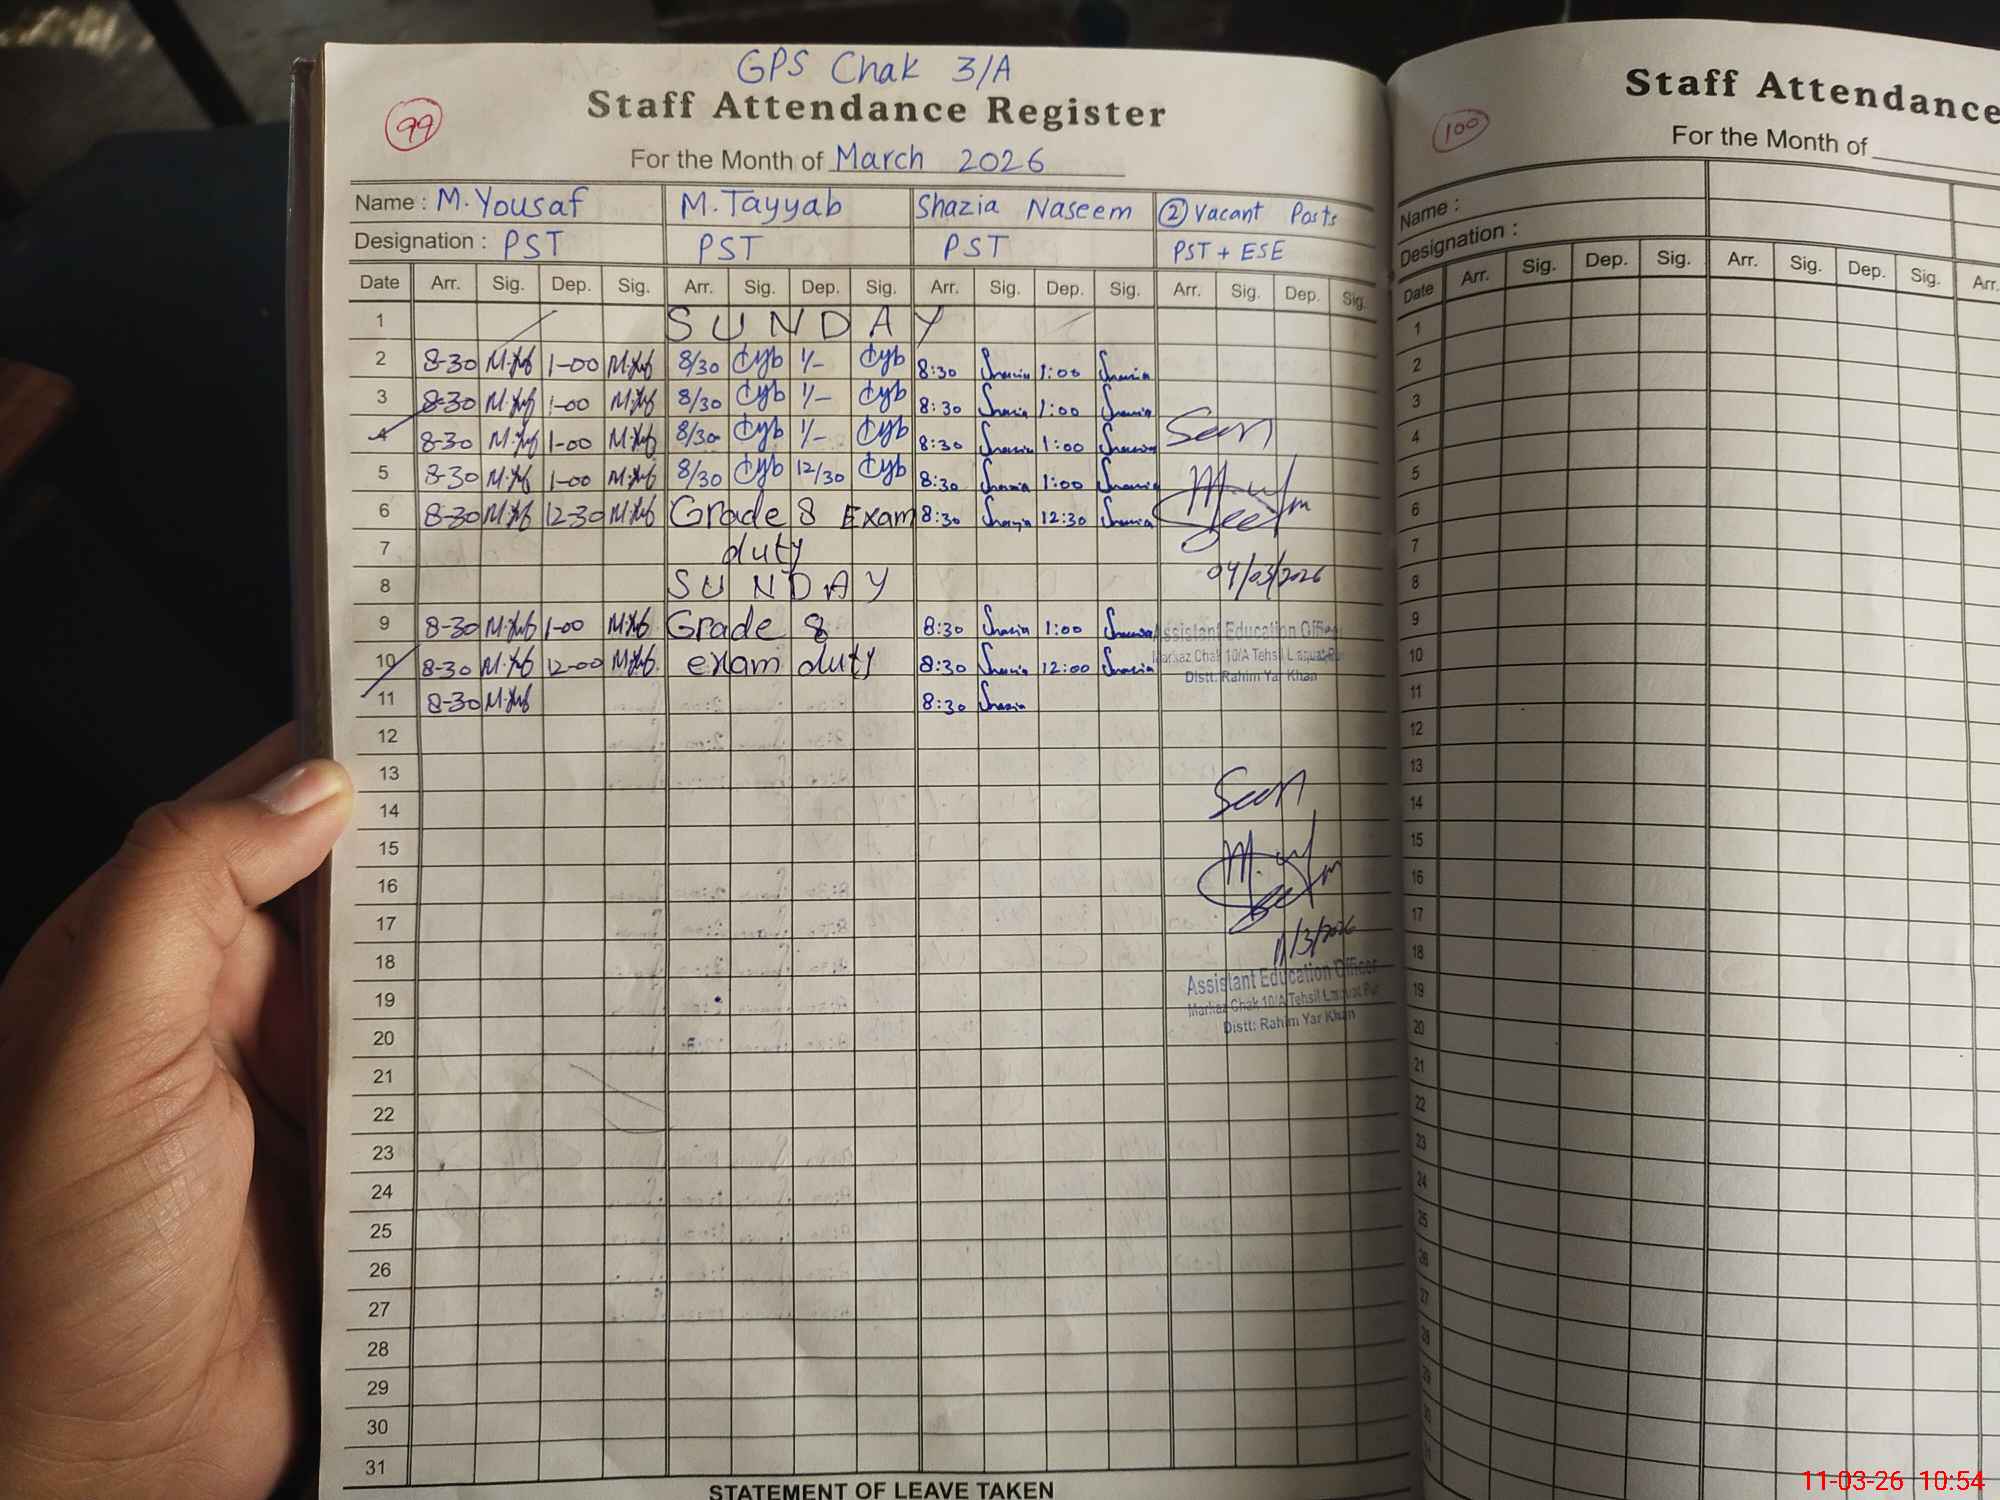 GPS Chak 3/A
99
Staff Attendance Register
For the Month of March 2026
Name : M.Yousaf M.Tayyab Shazia Naseem ② Vacant Posts
Designation : PST PST PST PST + ESE
Date Arr. Sig. Dep. Sig. Arr. Sig. Dep. Sig. Arr. Sig. Dep. Sig. Arr. Sig. Dep. Sig.
1 SUNDAY
2 8-30 1-00 8/30 1/- 8:30 Shazia 1:00 Shazia
3 8-30 1-00 8/30 1/- 8:30 Shazia 1:00 Shazia
4 8-30 1-00 8/30 1/- 8:30 Shazia 1:00 Shazia Seen
5 8-30 1-00 8/30 12/30 8:30 Shazia 1:00 Shazia
6 8-30 12-30 Grade 8 Exam 8:30 Shazia 12:30 Shazia
7 duty
8 SUNDAY 04/03/2026
9 8-30 1-00 Grade 8 8:30 Shazia 1:00 Shazia Assistant Education Officer
10 8-30 12-00 exam duty 8:30 Shazia 12:00 Shazia Markaz Chak 10/A Tehsil Liaquat Pur
11 8-30 8:30 Shazia Distt: Rahim Yar Khan
12
13
14 Seen
15
16
17
18 11/3/2026
19 Assistant Education Officer
Markaz Chak 10/A Tehsil Liaquat Pur
20 Distt: Rahim Yar Khan
21
22
23
24
25
26
27
28
29
30
31
STATEMENT OF LEAVE TAKEN
100
Staff Attendance
For the Month of
Name :
Designation :
Date Arr. Sig. Dep. Sig. Arr. Sig. Dep. Sig. Arr.
1
2
3
4
5
6
7
8
9
10
11
12
13
14
15
16
17
18
19
20
21
22
23
24
25
26
27
28
29
30
31
11-03-26 10:54